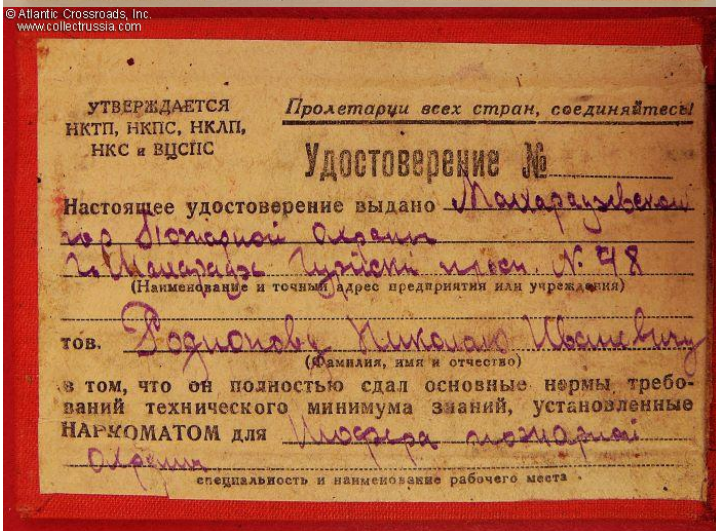 © Atlantic Crossroads, Inc.
www.collectrussia.com
УТВЕРЖДАЕТСЯ
НКТП, НКПС, НКЛП,
НКС и ВЦСПС
Пролетарии всех стран, соединяйтесь!
Удостоверение №
Настоящее удостоверение выдано Махарадзевской
гор Пожарной Охраны
г. Махарадзе Гурийский № 48
(Наименование и точный адрес предприятия или учреждения)
тов. Родионову Николаю Ивановичу
(Фамилия, имя и отчество)
в том, что он полностью сдал основные нормы требо-
ваний технического минимума знаний, установленные
НАРКОМАТОМ для Шофера пожарной
Охраны
специальность и наименование рабочего места